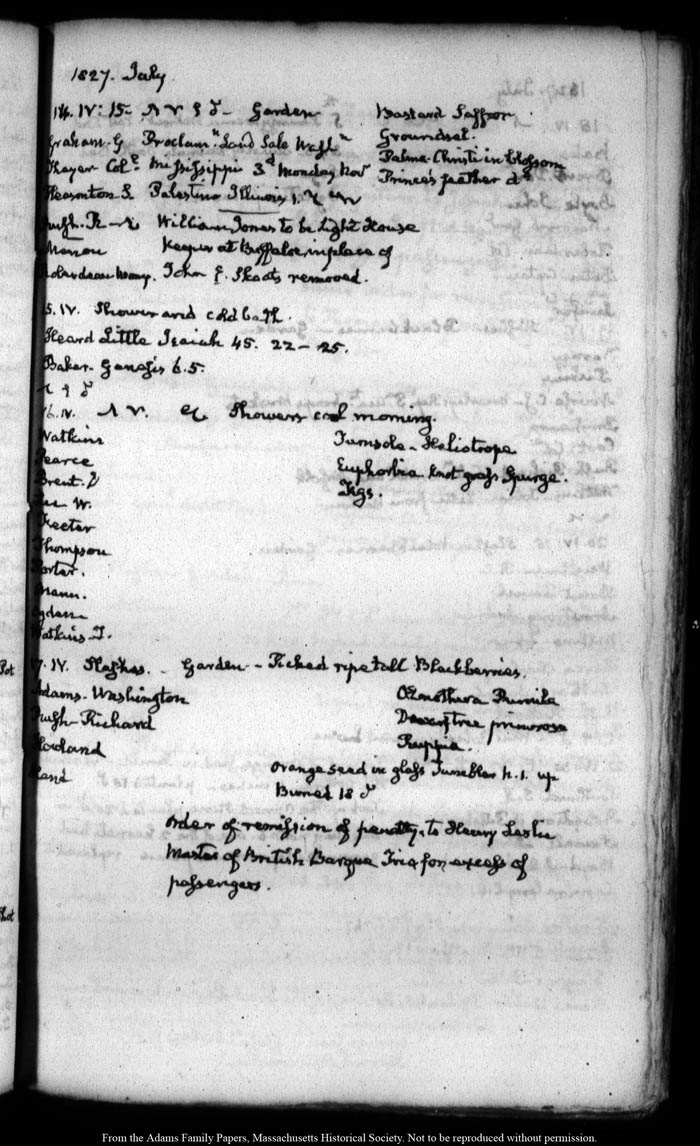 1827. July
14. IV: 15. Garden
Bastard Saffron
Graham. G Proclam. "Land Sale West"
Groundsel.
Thayer Col. Mississippi 3d Monday Nov
Palma-Christi in blossom
Pleasonton. S Palestine Illinois
Prince's feather do
Rush. R William Jones to be Light House
Keeper at Buffaloe in place of
John E. Skaats removed.
15. IV. Shower and cold bath.
Heard Little Isaiah 45. 22–25.
Baker. Genesis 6.5.
16. IV. Showers cool morning.
Watkins
Turnsole-Heliotrope
Pearce
Euphorbia knot grass Spurge.
Brent.
Figs.
Lee W.
Thompson
Porter.
Mann.
Ogden
Watkins T.
17. IV. Garden – Picked ripe tall Blackberries.
Adams. Washington
Oenothera Pumila
Rush-Richard
Dwarf tree primrose
Howland
Ruppia.
Orange seed in glass Tumbler n. 1. up
Buried 18
Order of remission of penalty, to Henry Leslie
Master of British Barque Iris for excess of
passengers.
From the Adams Family Papers, Massachusetts Historical Society. Not to be reproduced without permission.